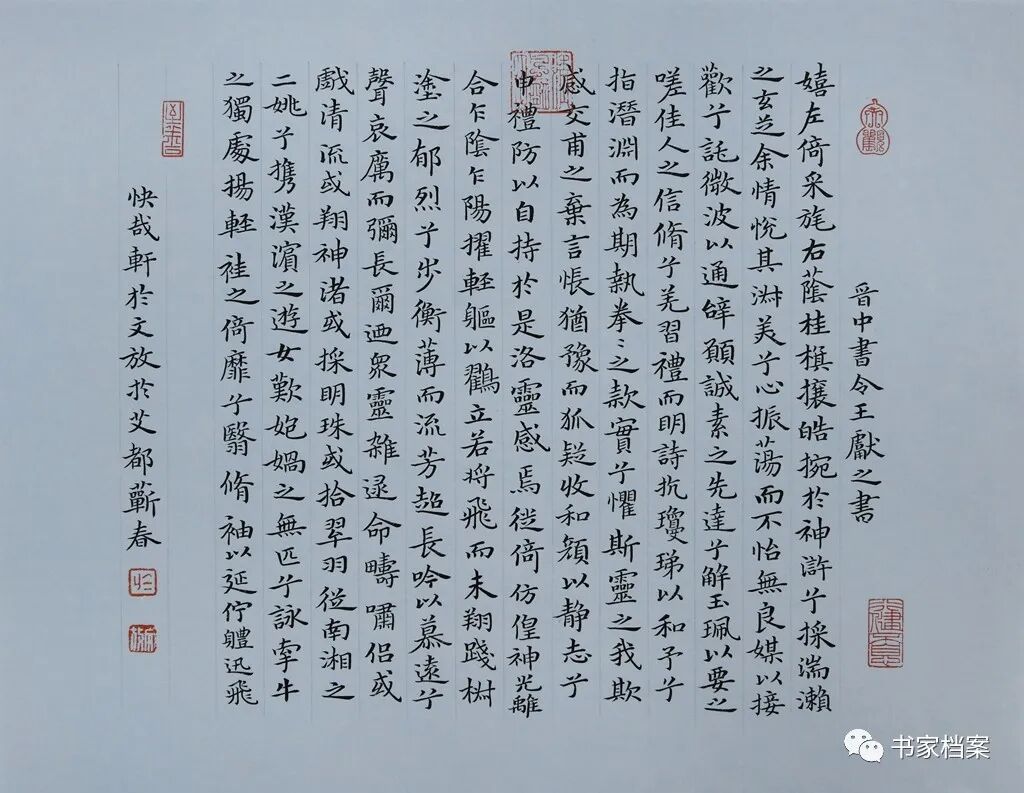 晉中書令王獻之書
嬉左倚采旄右蔭桂樶攘皓捥於神滸兮採湍瀨
之玄芝余情悅其淋美兮心振蕩而不怡無良媒以接
歡兮託微波以通辭願誠素之先達兮解玉珮以要之
嗟佳人之信脩兮羌習禮而明詩抗瓊珶以和予兮
指潛淵而為期執拳〻之款實兮懼斯靈之我欺
感交甫之棄言悵猶豫而狐疑收和顏以靜志兮
申禮防以自持於是洛靈感焉徙倚仿偟神光離
合乍陰乍陽擢輕軀以鸖立若將飛而未翔踐椒
塗之郁烈兮步衡薄而流芳超長吟以慕遠兮
聲哀厲而彌長爾迺眾靈雜遝命疇嘯侶或
戲清流或翔神渚或採明珠或拾翠羽從南湘之
二姚兮攜漢濱之遊女歎匏媧之無匹兮詠牽牛
之獨處揚輕袿之倚靡兮翳脩袖以延佇體迅飛
快哉軒於文放於艾都蘄春
书家档案